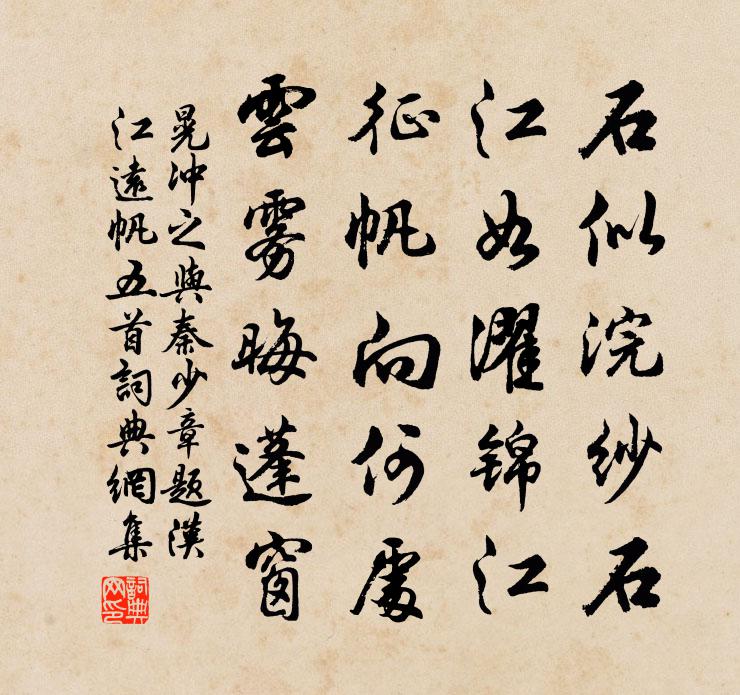 石似浣紗石
江如濯錦江
征帆向何處
雲霧晦蓬窗
晁冲之與秦少章題漢
江遠帆五首詞典網集
詞典
网印